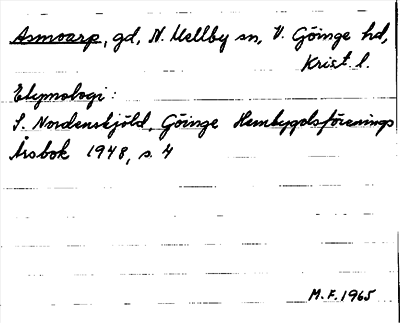 Asmoarp, gd, N. Mellby sn, V. Göinge hd,
Krist. l.
Etymologi:
S. Nordenskjöld, Göinge Hembygdsförenings
Årsbok 1948, s. 4
M.F. 1965